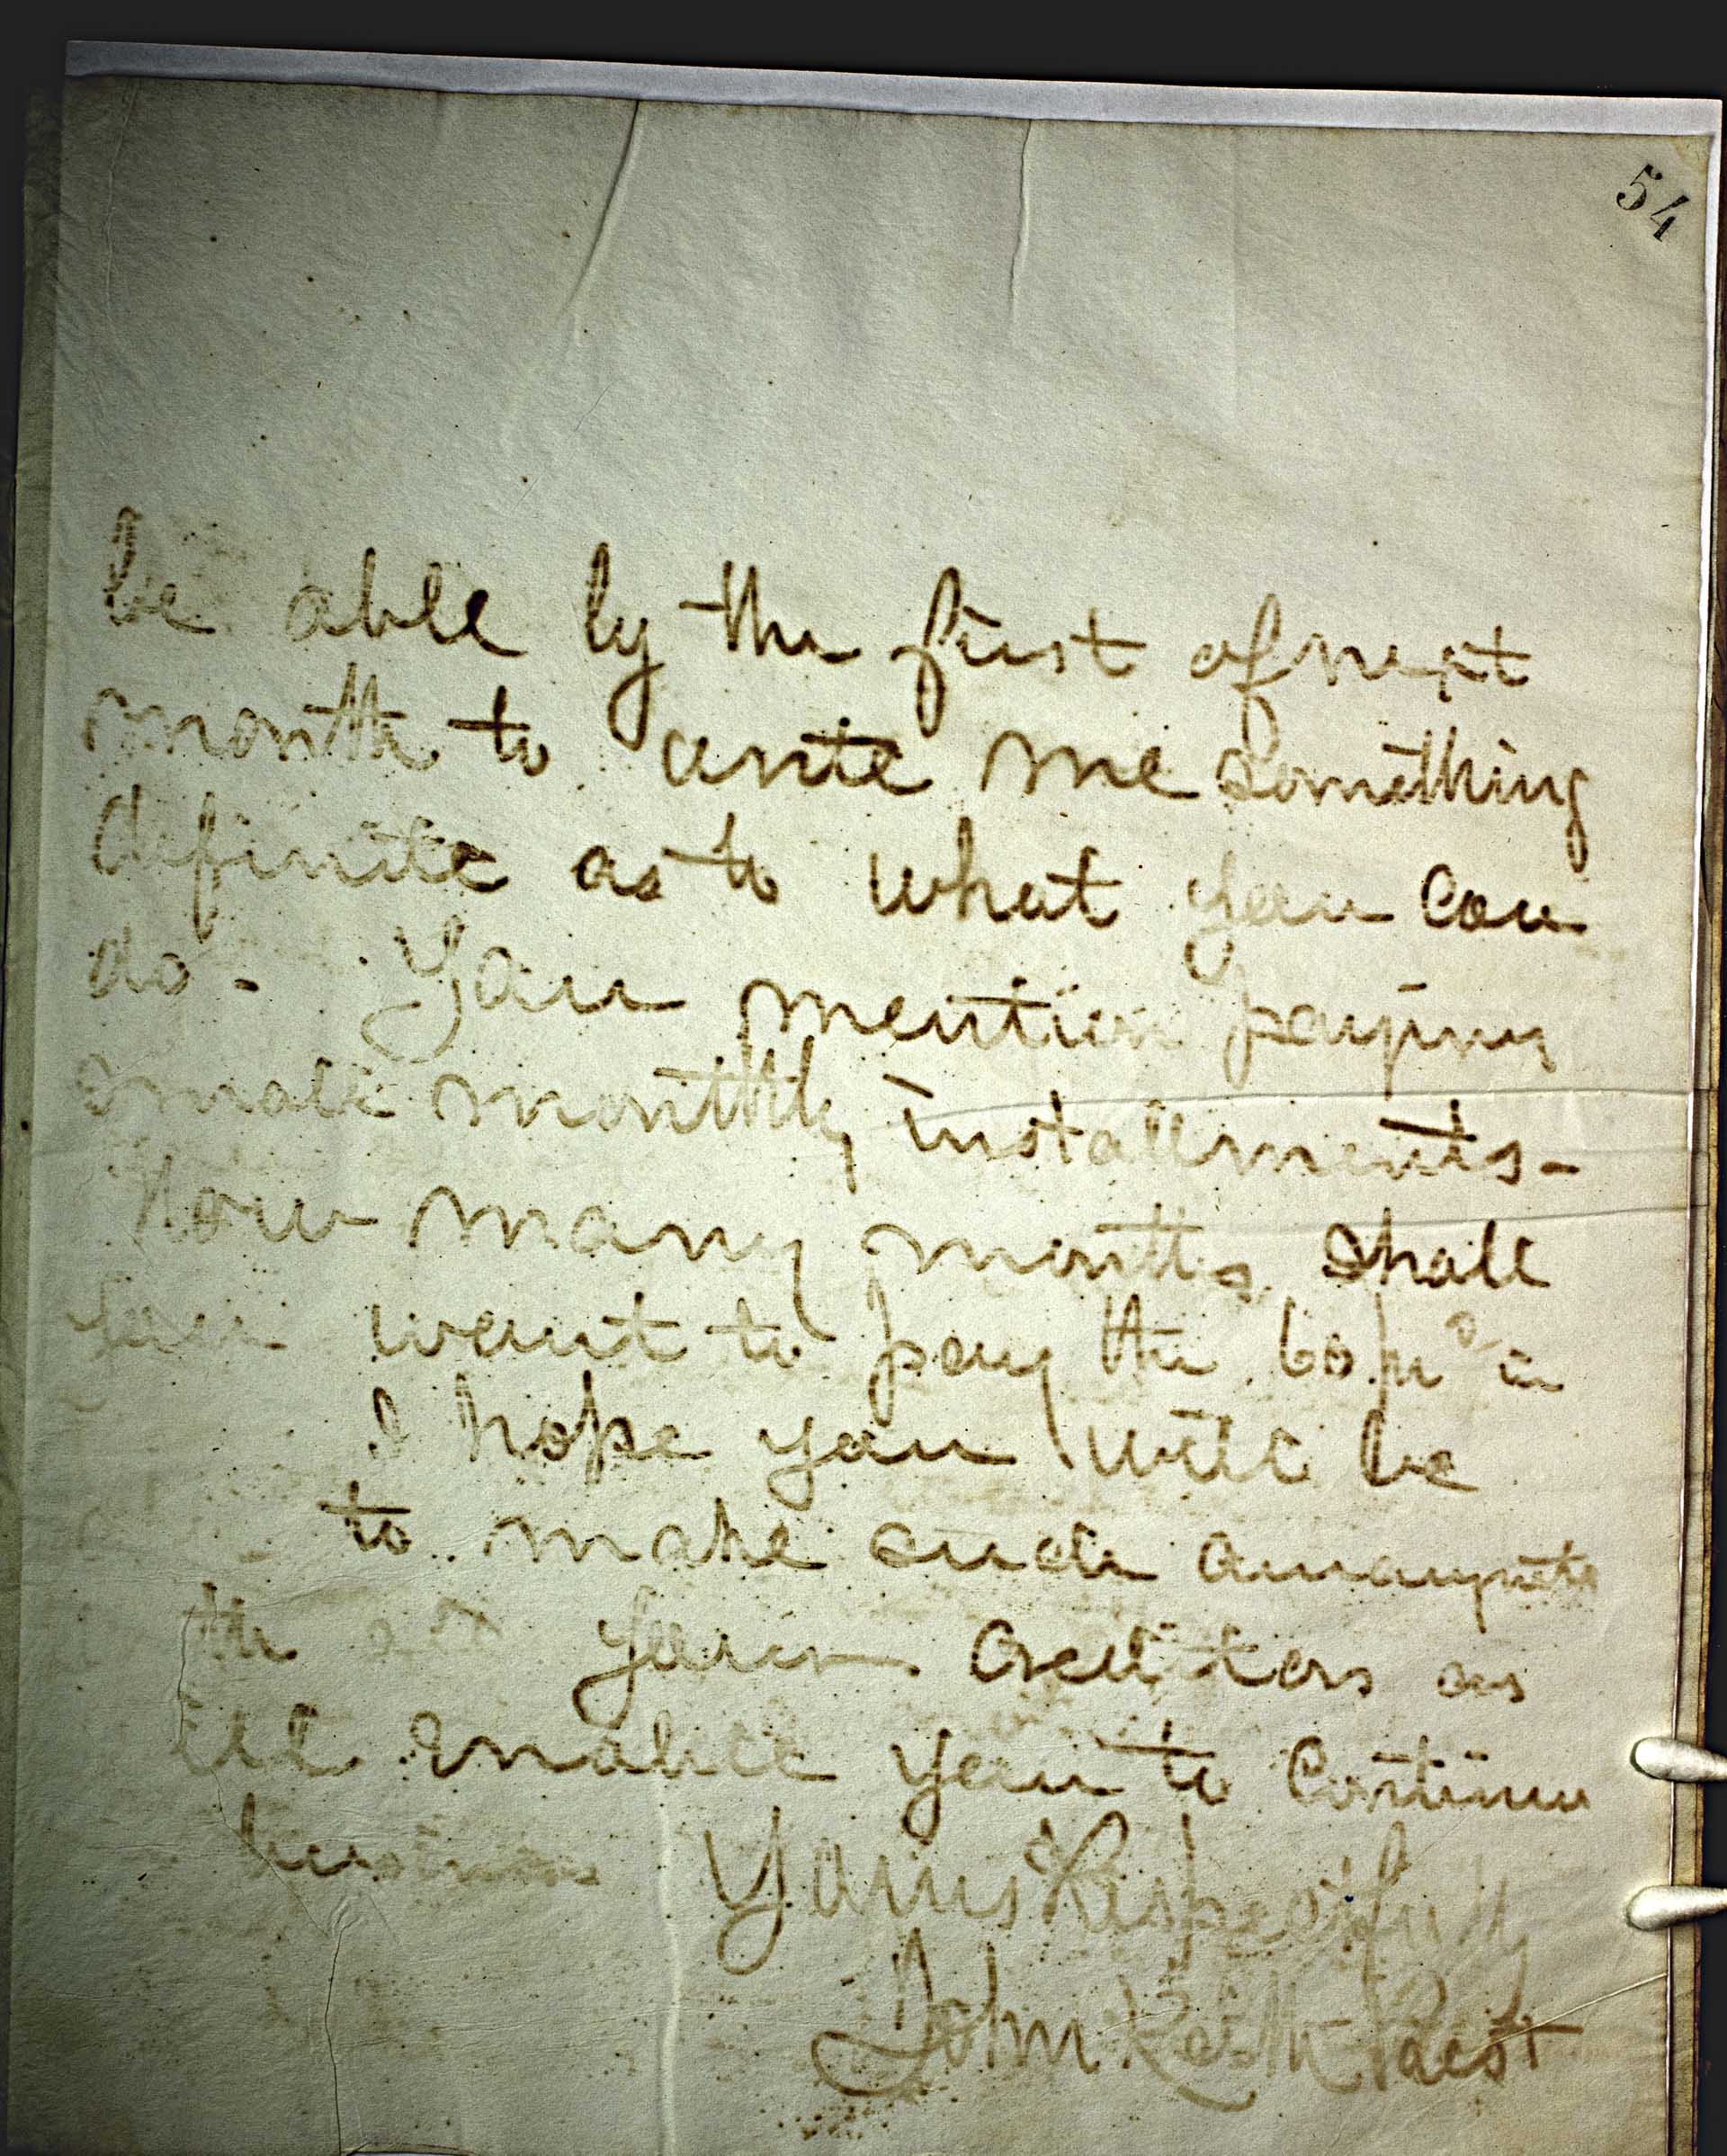 54
be able by the first of next
month to write me something
definite as to what you can
do. You mention paying
small monthly installments -
How many months shall
you want to pay the 60
I hope you will be
to make such arrangmts
th all your creditors as
ill enable you to continue
business Yours Respectfully
John Keith Prest